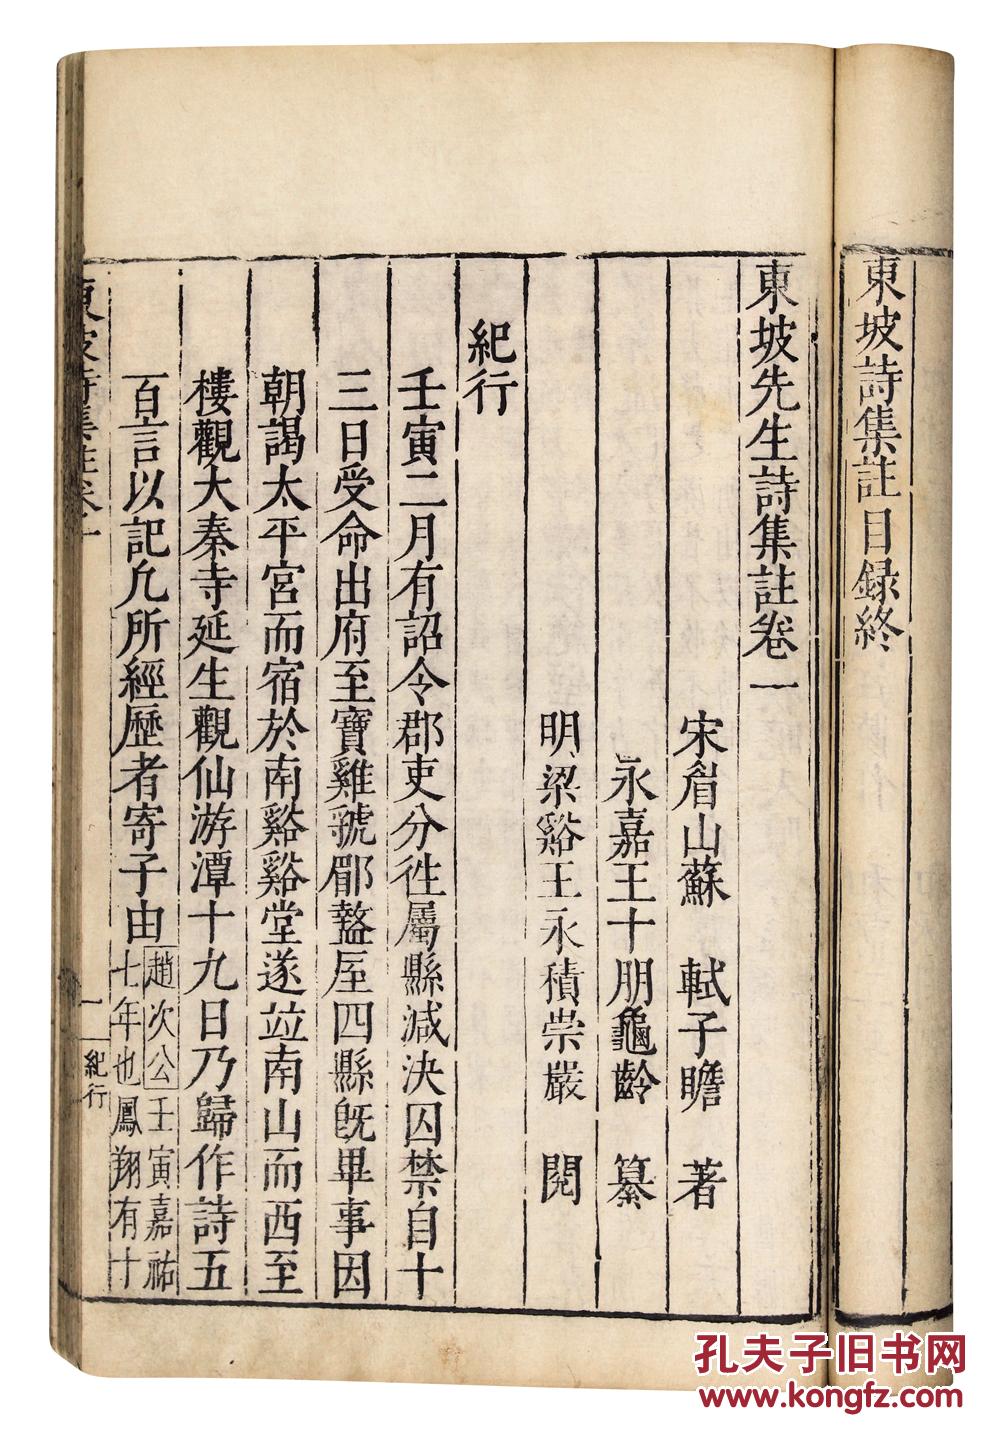 東坡詩集註目録終
東坡先生詩集註卷一
宋眉山蘇 軾子瞻 著
永嘉王十朋龜齡 纂
明梁谿王永積崇嚴 閱
紀行
壬寅二月有詔令郡吏分徃屬縣減決囚禁自十
三日受命出府至寶雞虢郿盩厔四縣旣畢事因
朝謁太平宮而宿於南谿谿堂遂竝南山而西至
樓觀大秦寺延生觀仙游潭十九日乃歸作詩五
百言以記凢所經歷者寄子由
趙次公壬寅嘉祐
七年也鳳翔有十
東坡詩集註卷一
一
紀行
孔夫子旧书网
www.kongfz.com